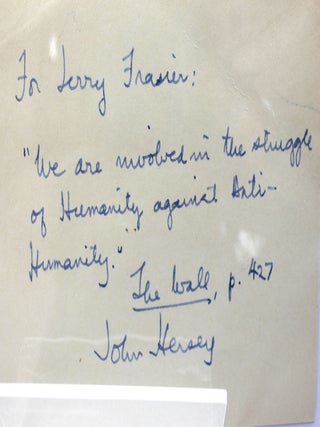 For Jerry Frasier:
"We are involved in the struggle
of Humanity against Anti-
Humanity."
The Wall, p. 427
John Hersey